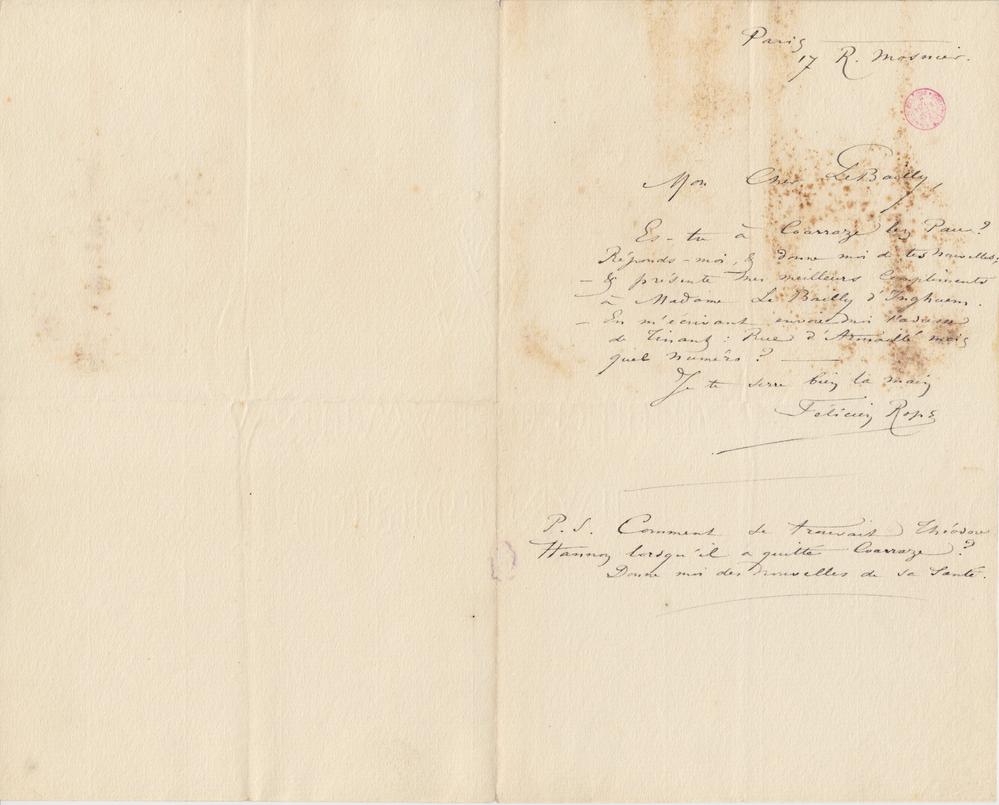 Paris
17 R. Mosnier.
Mon Cher LeBailly,
Es-tu à Coarraze lez Pau?
Réponds-moi, & donne moi de tes nouvelles;
– & présente mes meilleurs Compliments
à Madame Le Bailly d'Inghuem.
– En m'écrivant envoie moi l'adresse
de Tinant: Rue d'Armaillé mais
quel numéro? —
Je te serre bien la main
Félicien Rops
P.S. Comment se trouvait Théodore
Hannon lorsqu'il a quitté Coarraze?
Donne moi des nouvelles de sa Santé.